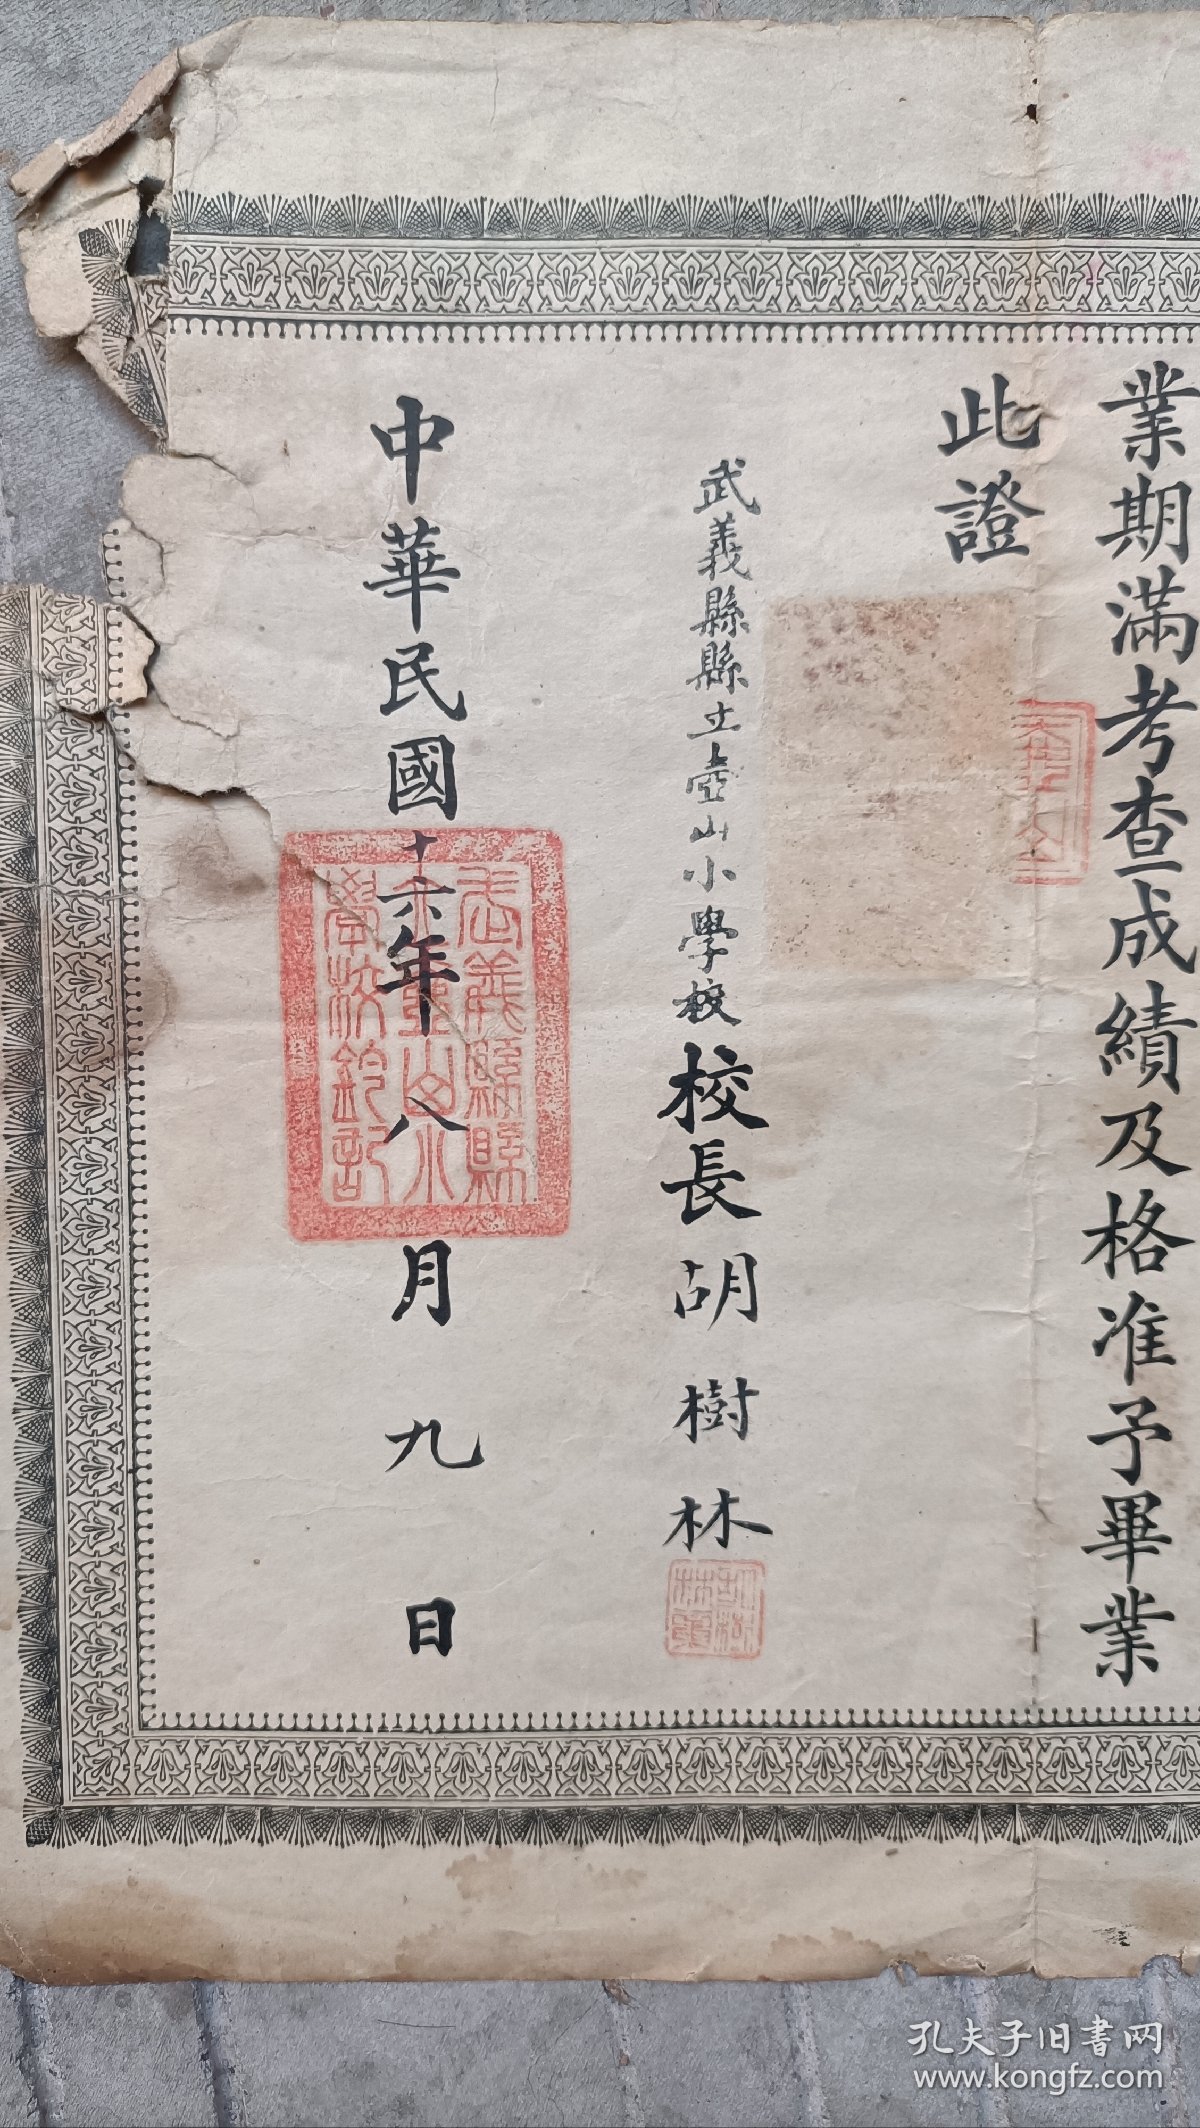 業期滿考查成績及格准予畢業
此證
武義縣縣立壺山小學校校長胡樹林
中華民國十六年八月九日
武義縣縣
立壺山小
學校鈐記
孔夫子旧書网
www.kongfz.com